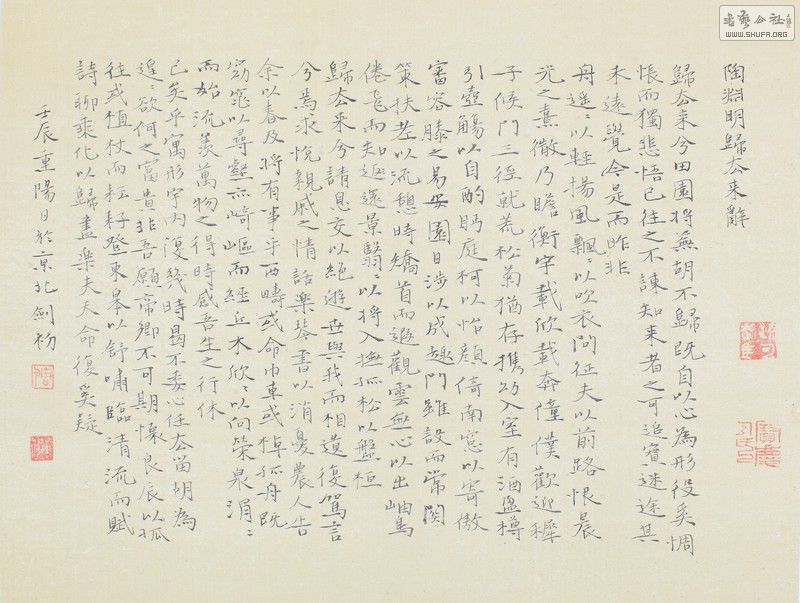 陶淵明歸去来辭
歸去来兮田園将蕪胡不歸既自以心為形役奚惆
悵而獨悲悟已往之不諫知来者之可追實迷途其
未遠覺今是而昨非
舟遥〻以輕揚風飄〻以吹衣問征夫以前路恨晨
光之熹微乃瞻衡宇載欣載奔僮僕歡迎稺
子候門三徑就荒松菊猶存携幼入室有酒盈樽
引壺觴以自酌眄庭柯以怡顔倚南窓以寄傲
審容膝之易安園日涉以成趣門雖設而常関
策扶老以流憩時矯首而遐觀雲無心以出岫鳥
倦飛而知返還景翳〻以将入撫孤松以盤桓
歸去来兮請息交以絶遊世與我而相遺復駕言
兮焉求悦親戚之情話樂琴書以消憂農人告
余以春及将有事乎西疇或命巾車或棹孤舟既
窈窕以尋壑亦崎嶇而經丘木欣〻以向榮泉涓〻
而始流羨萬物之得時感吾生之行休
已矣乎寓形宇内復幾時曷不委心任去留胡為
遑〻欲何之富貴非吾願帝鄉不可期懷良辰以孤
往或植杖而耘耔登東皋以舒嘯臨清流而賦
詩聊乘化以歸盡樂夫天命復奚疑
壬辰重陽日於京北劍初
書藝公社
WWW.SHUFA.ORG